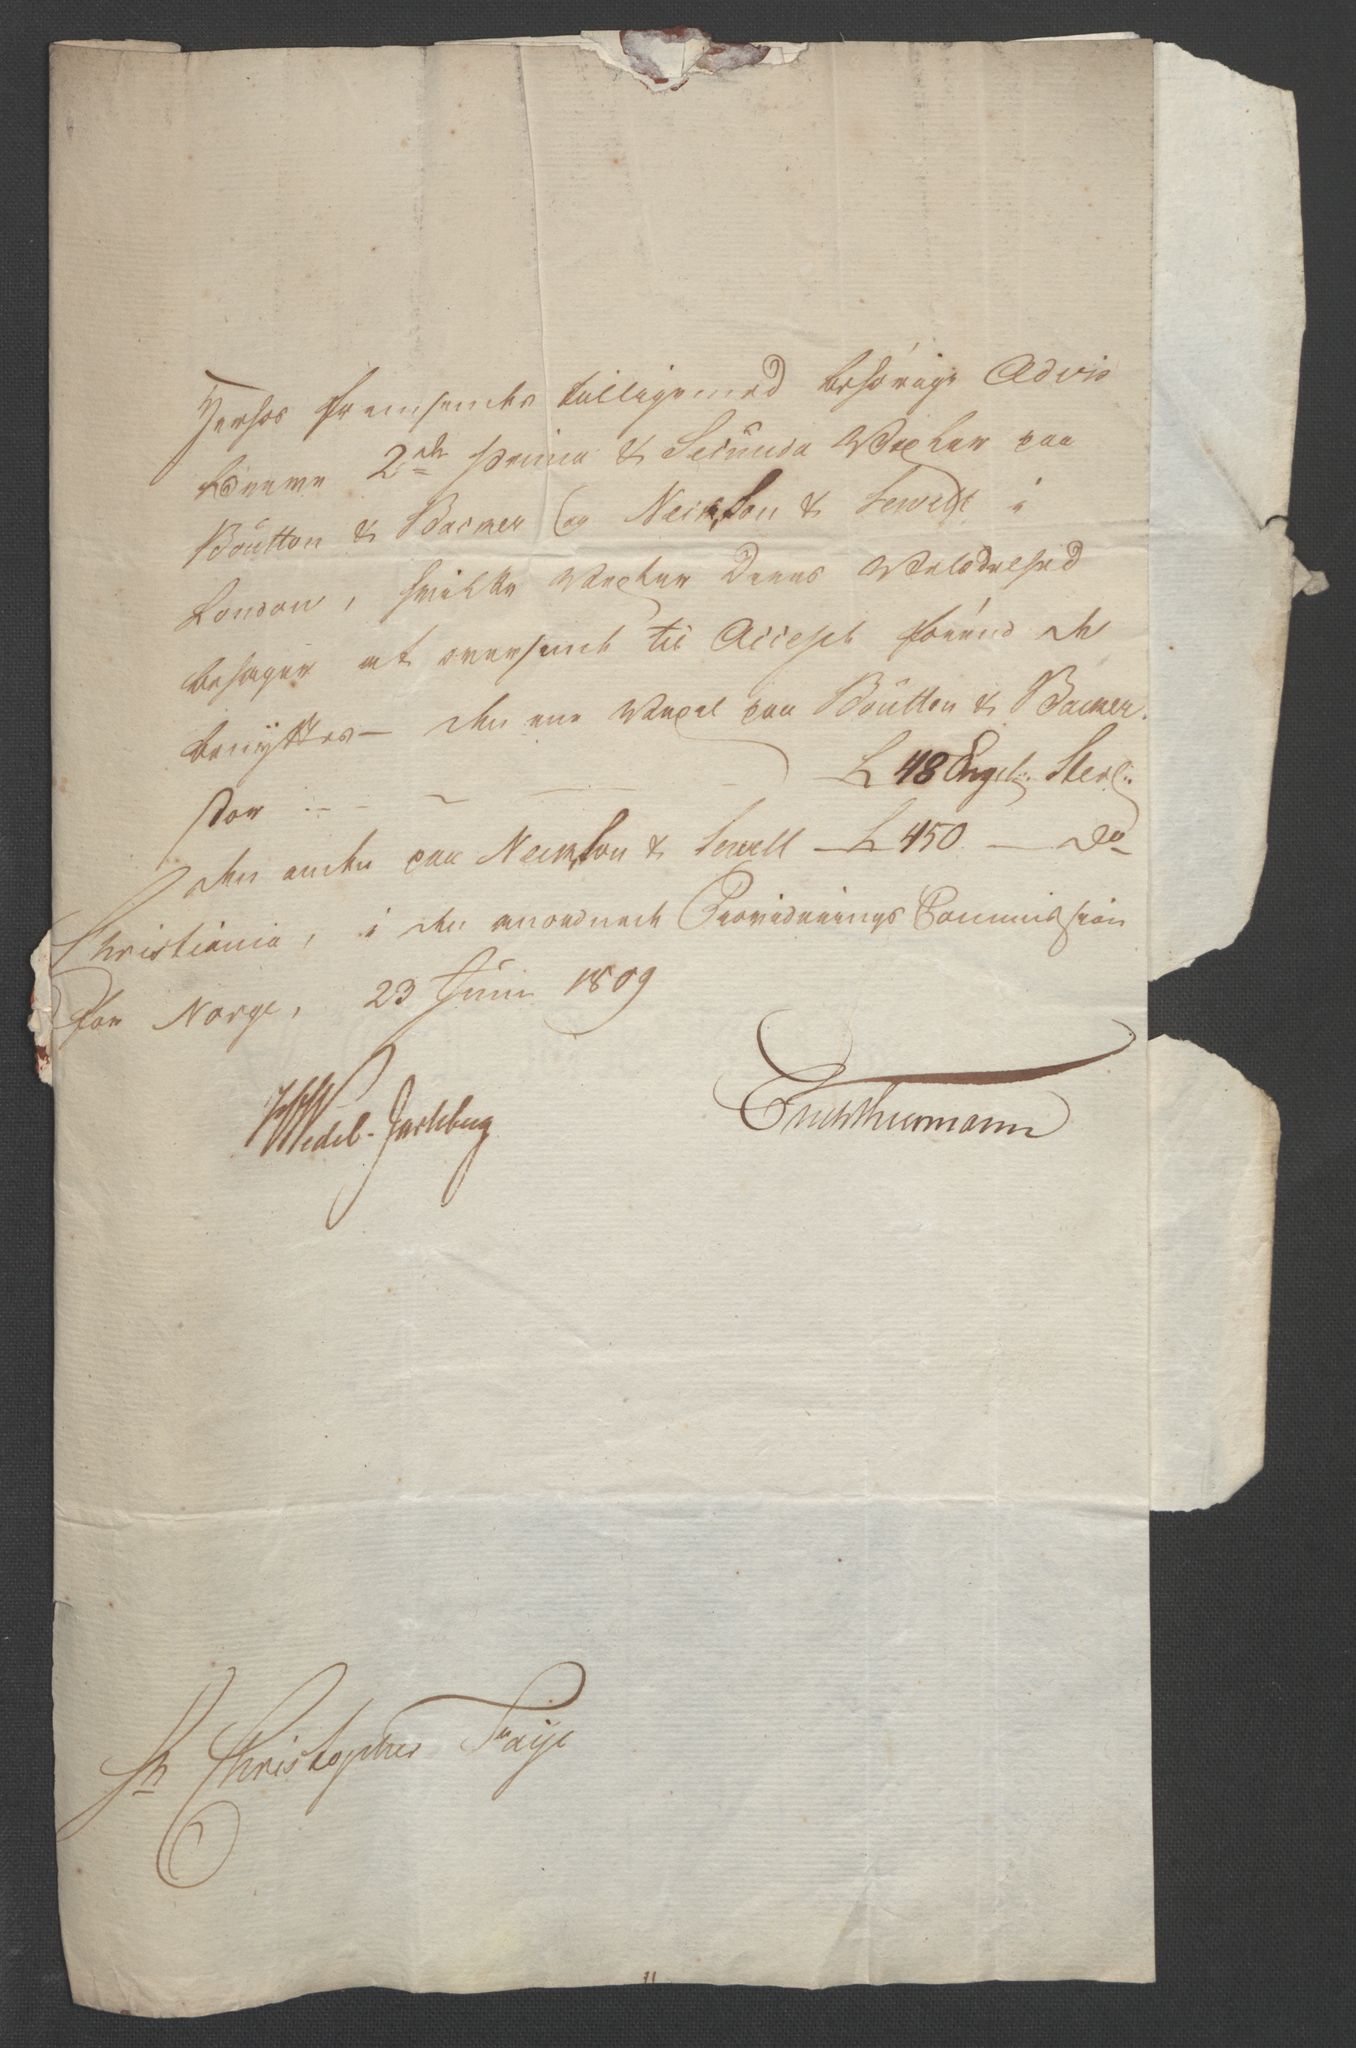 Herhos fremsendes tilligemed behørige Advis
Breve 2de prima & Secunda Vexler paa
Boutton & Bacmer og Neinson & Sewelt i
London, hvilke Vexler Deres Velædelhed
behager at oversende til Accept forend de
benyttes — den ene Vexel paa Boutton & Bacmer.
stor — £ 48 Engel: Sterl:
den anden paa Neinson & Sewell — £ 450 — do
Christiania, i den anordnede Provideerings Commission
for Norge, 23 Juni 1809
HWedel-Jarlsberg
Thurmann
Hr Christopher Faye